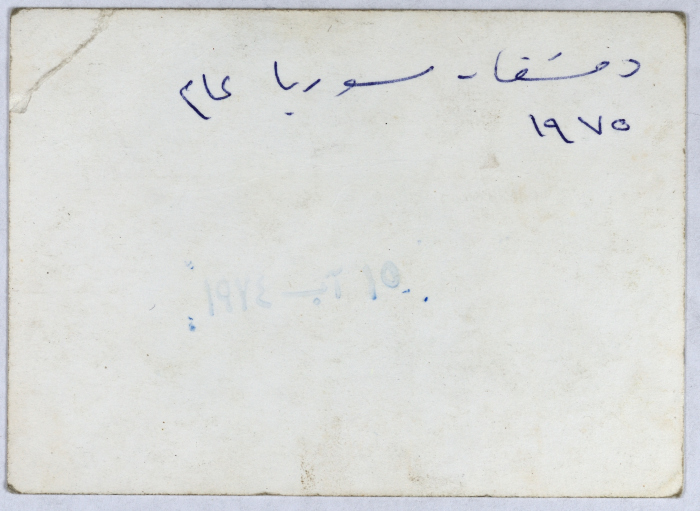 دمشق - سوريا عام
١٩٧٥
١٥ آب - ١٩٧٤